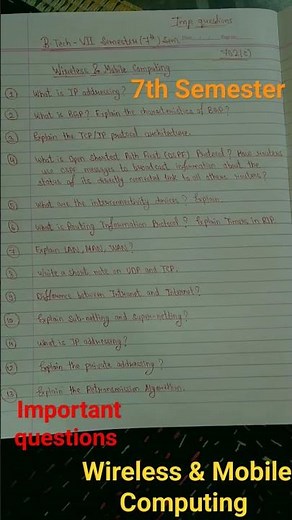 Imp questions
B.Tech - VII Semester (7th) Sem
7th Semester
Wireless & Mobile Computing
① What is IP addressing?
② What is BGP? Explain the characteristics of BGP?
③ Explain the TCP/IP protocol architecture.
④ What is Open Shortest Path First (OSPF) Protocol? How routers
use OSPF messages to broadcast information about the
status of its directly connected link to all others routers?
⑤ What are the interconnectivity devices? Explain
⑥ What is Routing Information Protocol? Explain Timers in RIP.
⑦ Explain LAN, MAN, WAN?
⑧ Write a short note on UDP and TCP.
⑨ Difference between Internet and Intranet?
⑩ Explain sub-netting and super-netting?
⑪ What is IP addressing?
⑫ Explain the private addressing?
⑬ Explain the Retransmission Algorithm.
Important
questions
Wireless & Mobile
Computing